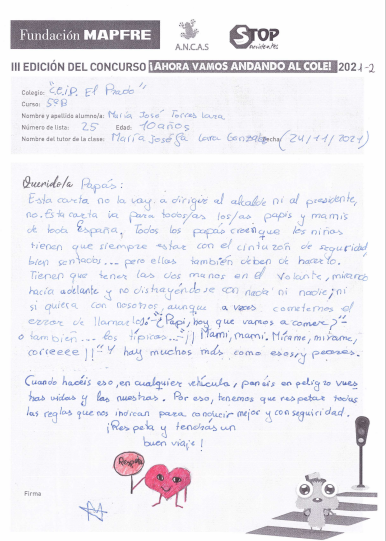 Fundación MAPFRE
A.N.C.A.S
STOP
accidentes
III EDICIÓN DEL CONCURSO ¡AHORA VAMOS ANDANDO AL COLE! 2021-2
Colegio: "C.E.I.P. El Prado"
Curso: 5ºB
Nombre y apellidos alumno/a: María José Torres Lara
Número de lista: 25 Edad: 10 años
Nombre del tutor de la clase: María Josefa Lara Fecha (24/11/2021)
Querido/a Papás:
Esta carta no la voy a dirigir al alcalde ni al presidente,
no. Esta carta va para todos/as los/as papis y mamis
de toda España. Todos los papás creen que los niños
tienen que siempre estar con el cinturón de seguridad,
bien sentados... pero ellas también deben de hacerlo.
Tienen que tener las dos manos en el volante, mirando
hacia adelante y no distrayéndose con nada ni nadie; ni
si quiera con nosotros, aunque a veces cometemos el
error de llamarlo: "¿Papi, hoy que vamos a comer?"
o también... los típicos... "¡¡Mami, mami. Mírame, mírame,
correeee!!" Y hay muchos más como esos, y peores.
Cuando hacéis eso, en cualquier vehículo, ponéis en peligro vues
tras vidas y las nuestras. Por eso, tenemos que respetar todas
las reglas que nos indican para conducir mejor y con seguridad.
¡Respeta y tendrás un
buen viaje!
Respeta
Firma